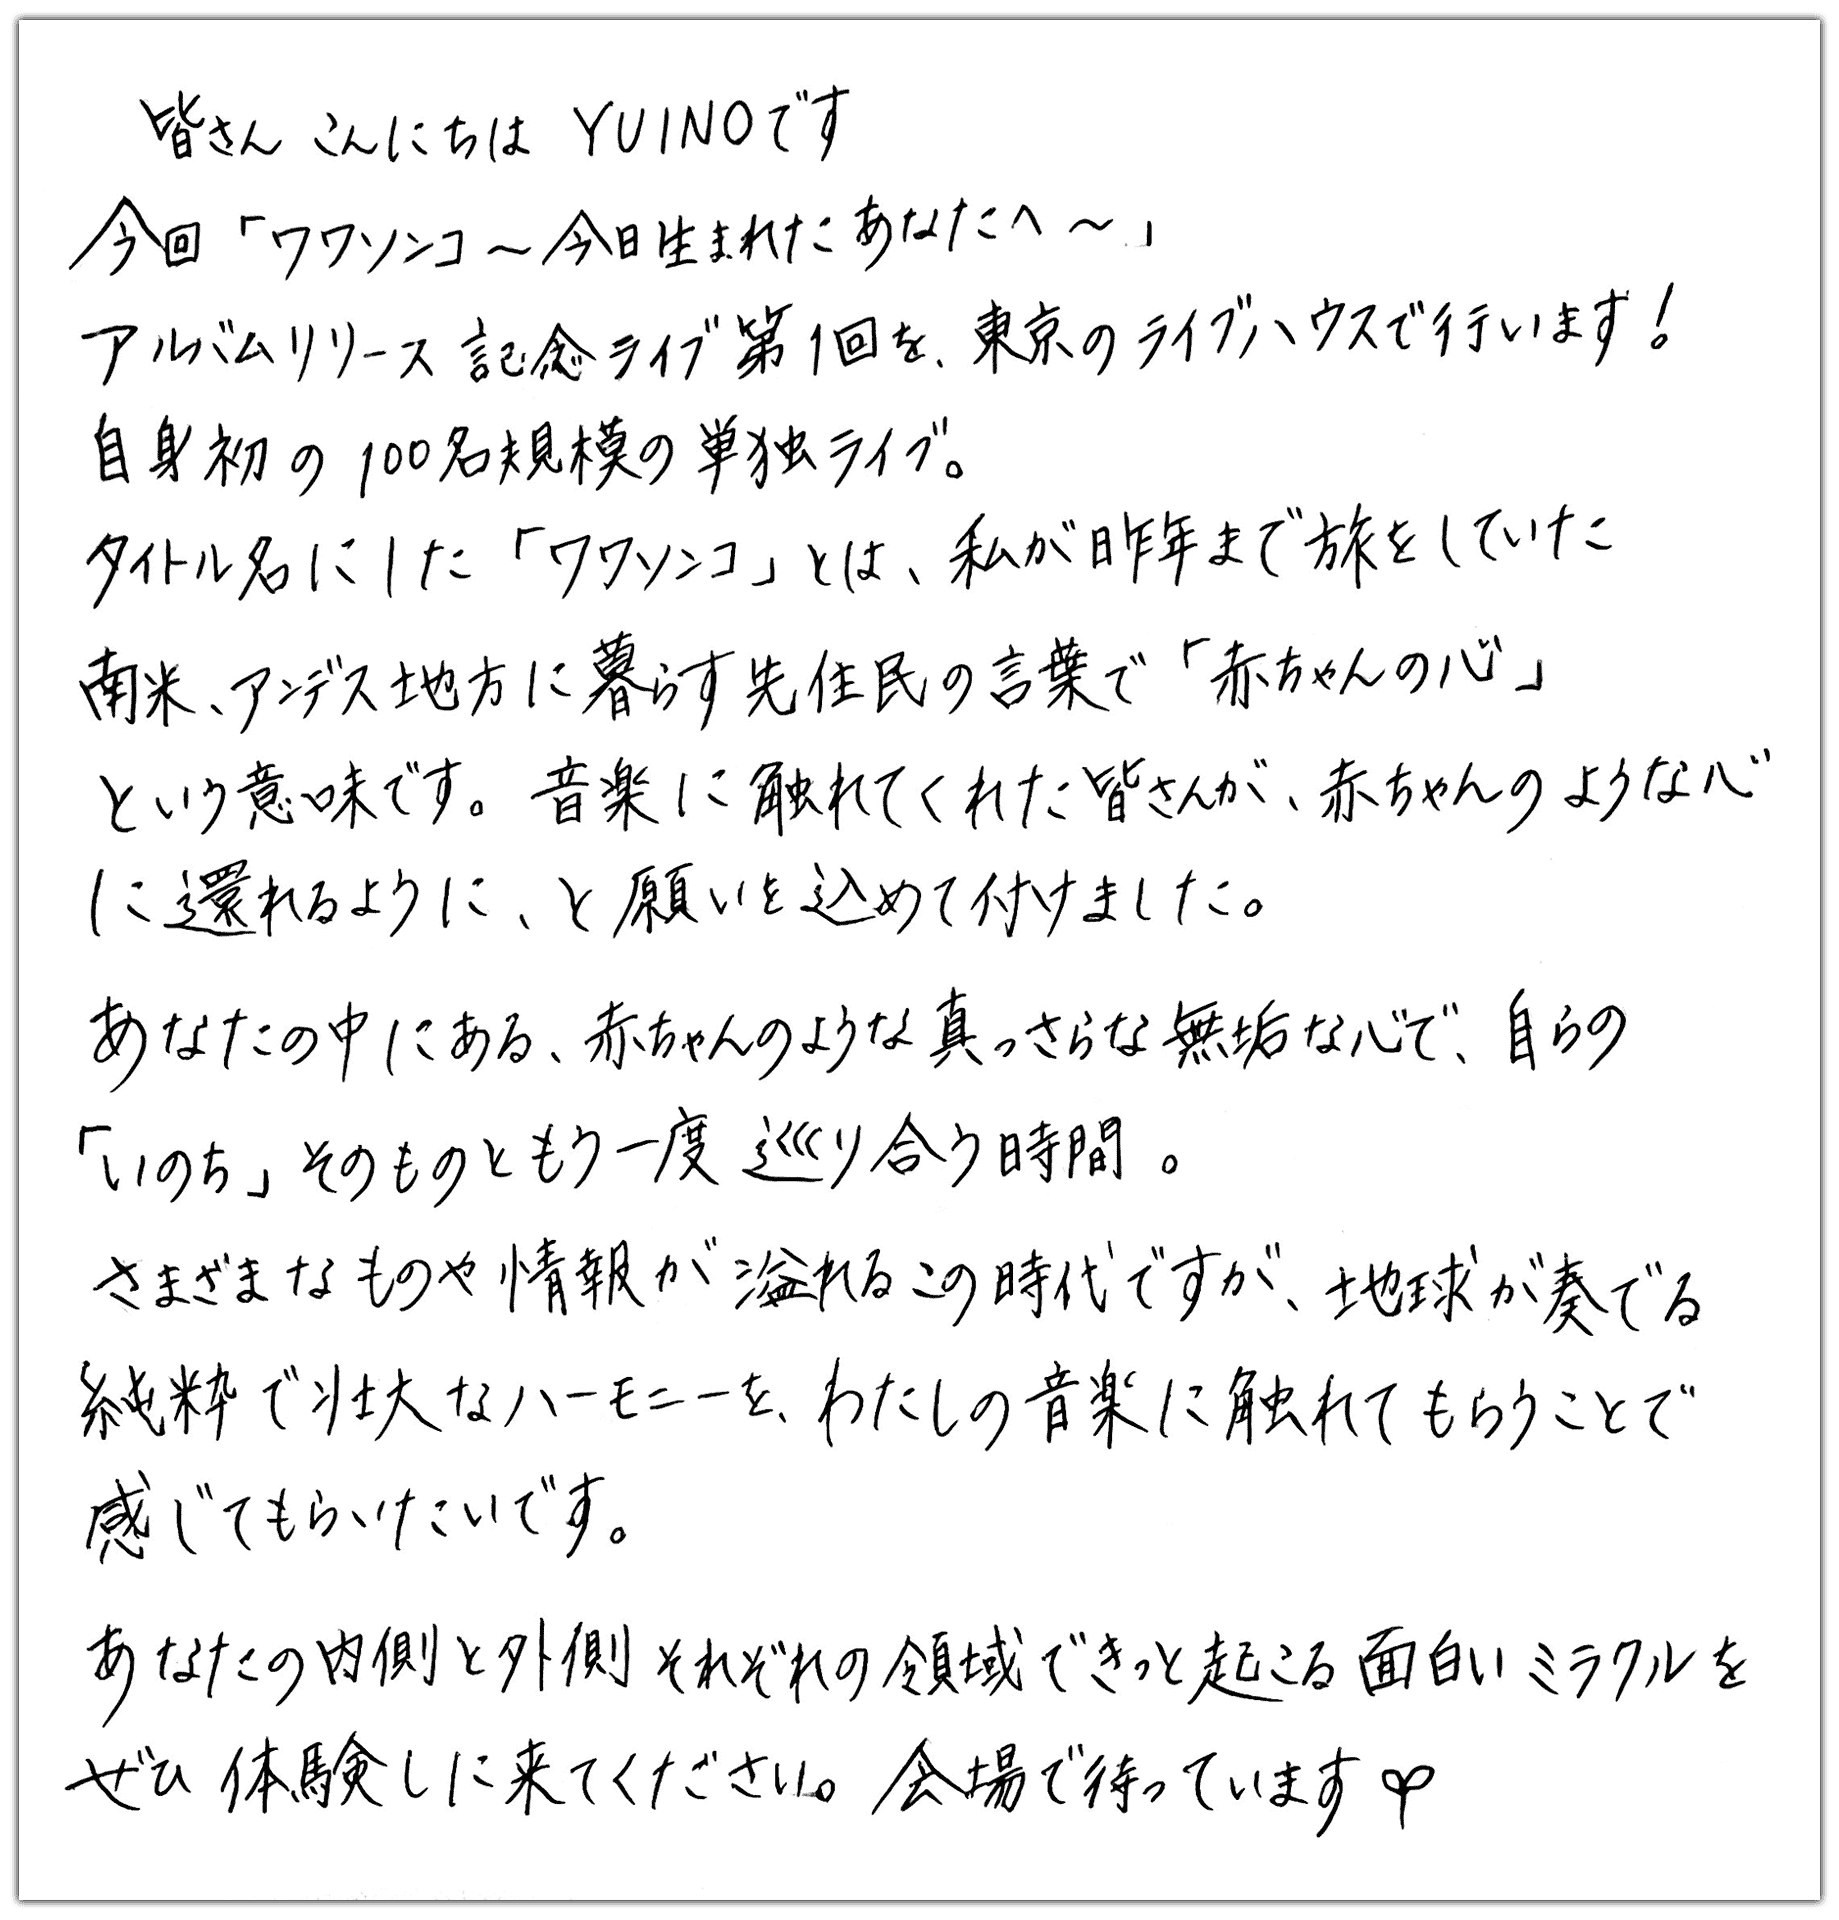 皆さん こんにちは YUINOです
今回「ワワソンコ～今日生まれたあなたへ～」
アルバムリリース記念ライブ第1回を、東京のライブハウスで行います!
自身初の100名規模の単独ライブ。
タイトル名にした「ワワソンコ」とは、私が昨年まで旅をしていた
南米、アンデス地方に暮らす先住民の言葉で「赤ちゃんの心」
という意味です。音楽に触れてくれた皆さんが、赤ちゃんのような心
に還れるように、と願いを込めて付けました。
あなたの中にある、赤ちゃんのような真っさらな無垢な心で、自らの
「いのち」そのものともう一度 巡り合う時間。
さまざまなものや情報が溢れるこの時代ですが、地球が奏でる
純粋で壮大なハーモニーを、わたしの音楽に触れてもらうことで
感じてもらいたいです。
あなたの内側と外側それぞれの領域できっと起こる面白いミラクルを
ぜひ体験しに来てください。会場で待っています